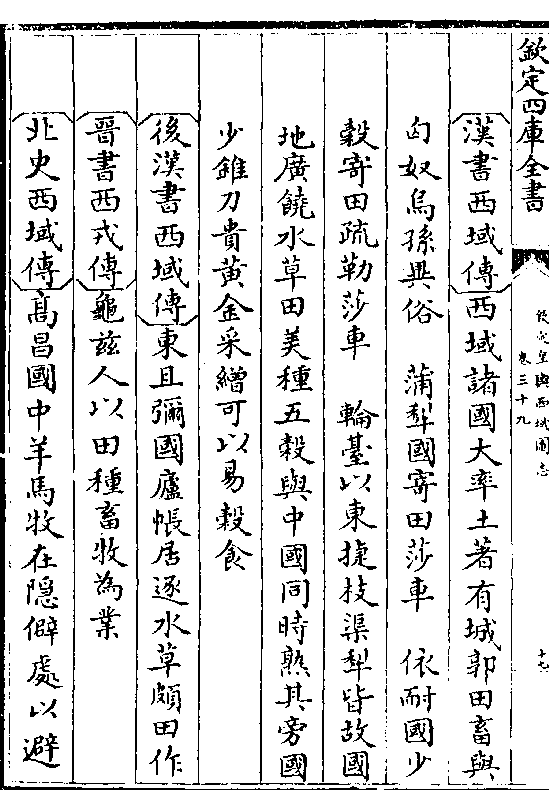 欽定四庫全書
欽定皇輿西域圖志
卷三十九
十七
漢書西域傳西域諸國大率土著有城郭田畜與
匈奴烏孫異俗　蒲犁國寄田莎車　依耐國少
穀寄田疏勒莎車　輪臺以東捷枝渠犁皆故國
地廣饒水草田美種五穀與中國同時熟其旁國
少錐刀貴黃金采繒可以易穀食
後漢書西域傳東且彌國廬帳居逐水草頗田作
晉書西戎傳龜茲人以田種畜牧為業
北史西域傳高昌國中羊馬牧在隱僻處以避